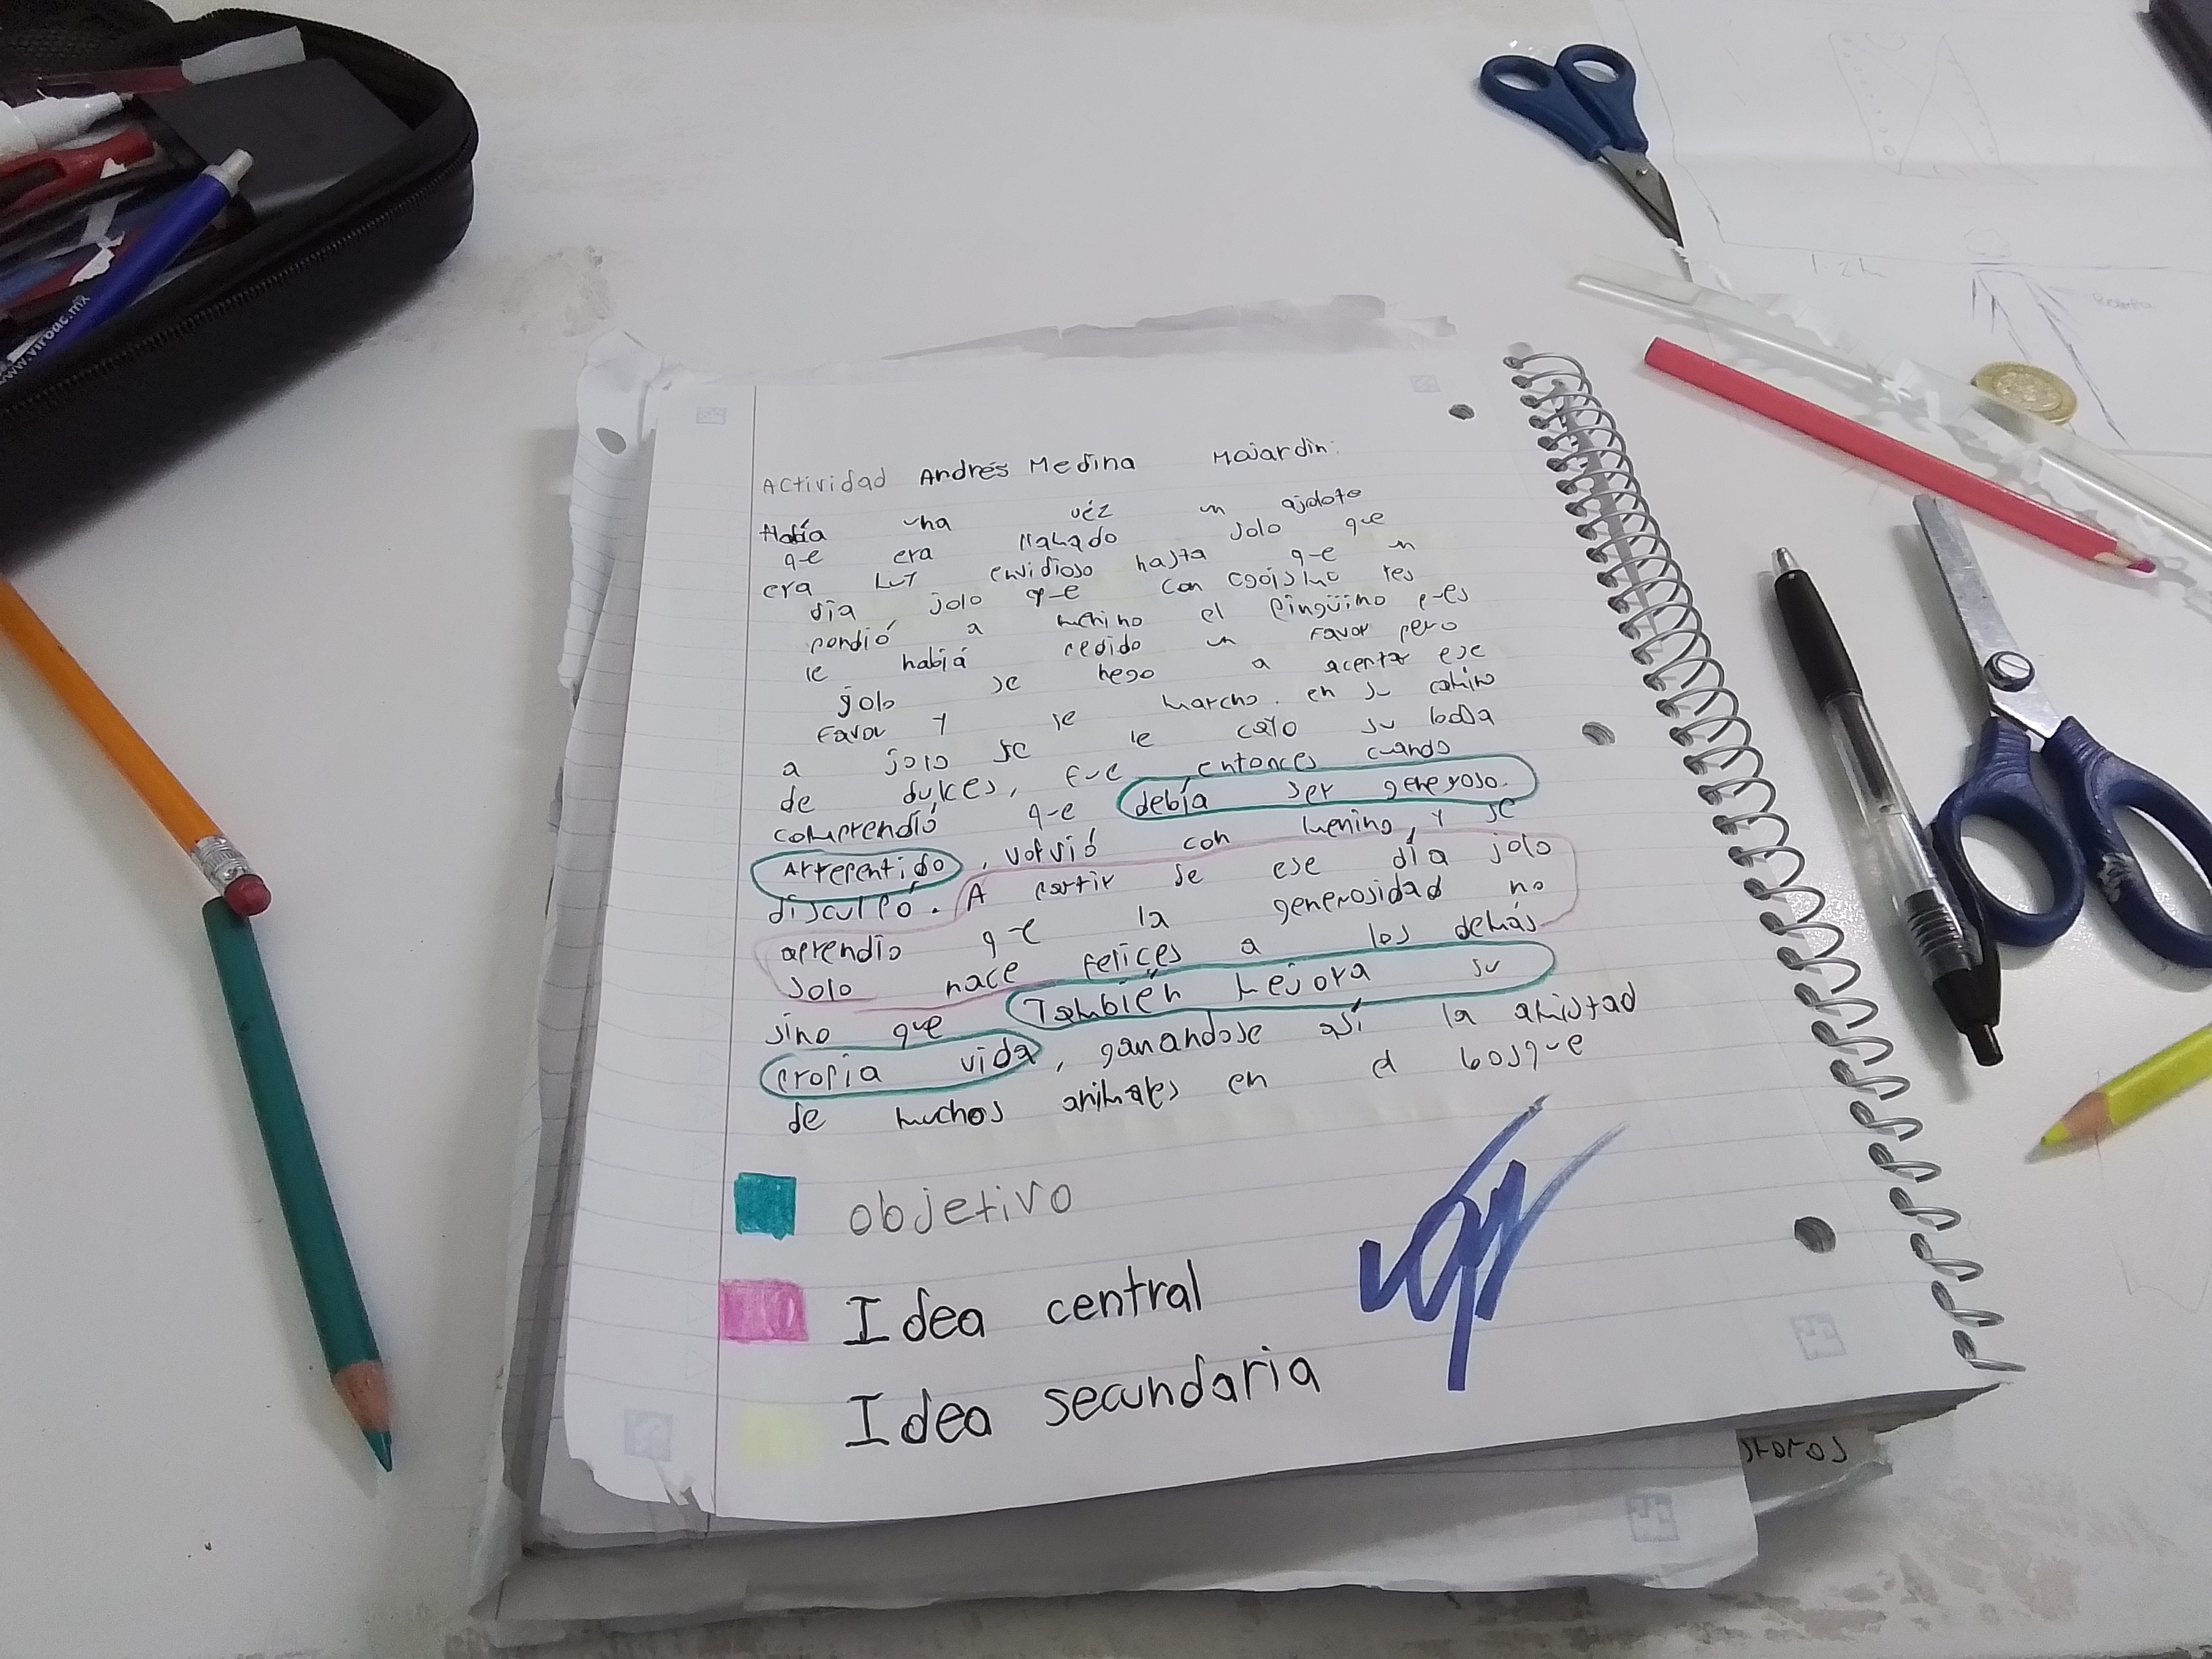 Actividad Andrés Medina Majardin:
Había una véz un ajolote
que era llamado Jolo que
era envidioso hasta que un
día jolo que con egoismo res
pondió a menino el pingüino pues
le habiá pedido un favor pero
jolo se nego a aceptar ese
favor y se marcho. en su camino
a jolo se le cayo su bolsa
de dulces, fue entonces cuando
comprendió que debía ser generoso.
Arrepentido, volvió con menino, y se
disculpó. A partir de ese día jolo
aprendio que la generosidad no
solo hace felices a los demás
sino que también mejora su
propia vida, ganandose así la amistad
de muchos animales en el bosque
objetivo
Idea central
Idea secundaria
www.virbac.mx